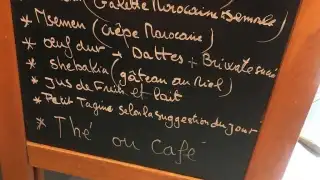 (Galette Marocaine Semoule)
* Msemen (Crêpe Marocain)
* œuf dur + Dattes + Briouate sucré
* shebakia (gâteau au Miel)
* Jus de Fruits et lait
* Petit Tagine selon la suggestion du jour
* Thé ou Café